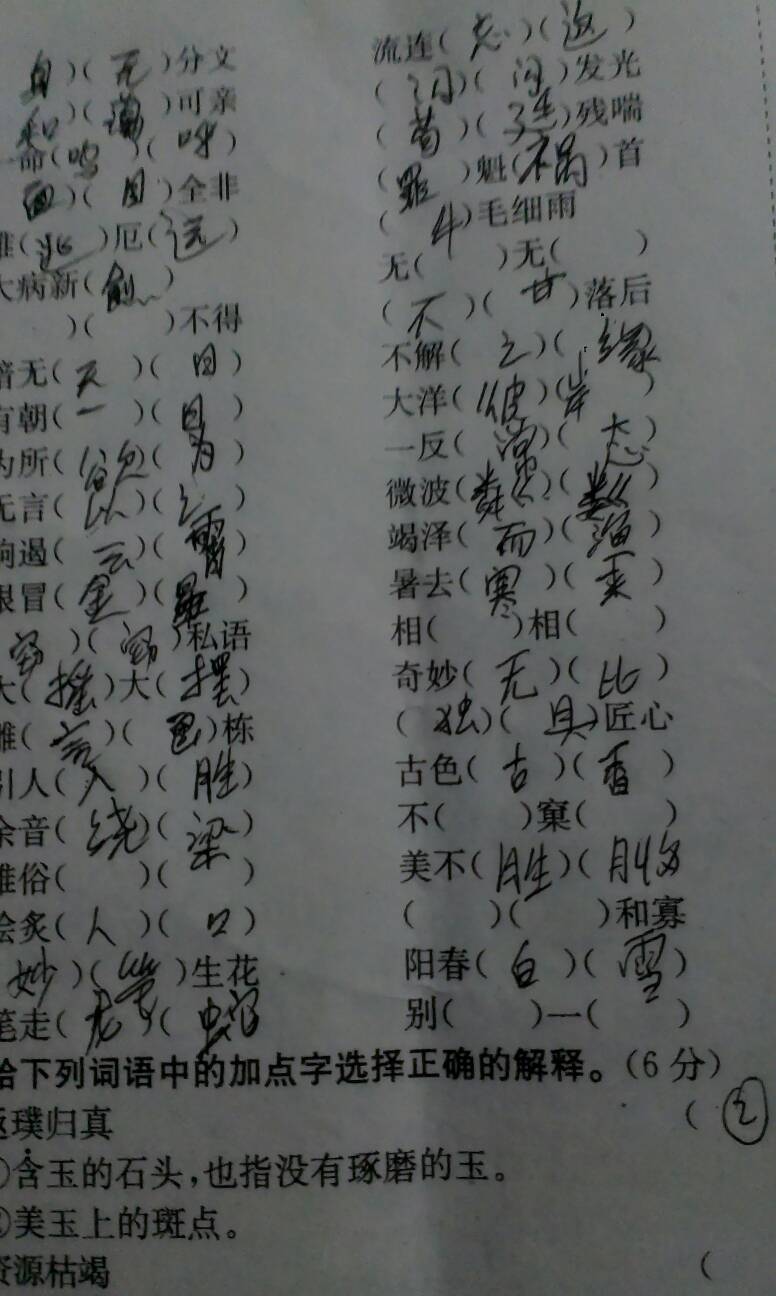 身)(无)分文
和)(蔼)可亲
命(呜)(呼)
面)(目)全非
难(逃)厄(运)
大病新(愈)
)( )不得
暗无(天)(日)
有朝(一)(日)
为所(欲)(为)
无言(以)(之)
响遏(云)(霄)
银冒(金)(星)
窃)(窃)私语
大(摇)大(摆)
雕(言)( )栋
引人(入)(胜)
余音(绕)(梁)
雅俗( )( )
脍炙(人)(口)
妙)(笔)生花
笔走(龙)(蛇)
流连(忘)(返)
(闪)(闪)发光
(苟)(延)残喘
(罪)魁(祸)首
(牛)毛细雨
无( )无( )
(不)(甘)落后
不解(之)(缘)
大洋(彼)(岸)
一反(常)(态)
微波(粼)(粼)
竭泽(而)(渔)
暑去(寒)(来)
相( )相( )
奇妙(无)(比)
(独)(具)匠心
古色(古)(香)
不( )窠( )
美不(胜)(收)
( )( )和寡
阳春(白)(雪)
别( )一( )
给下列词语中的加点字选择正确的解释。(6分)
返璞归真 (②
①含玉的石头,也指没有琢磨的玉。
②美玉上的斑点。
资源枯竭 (